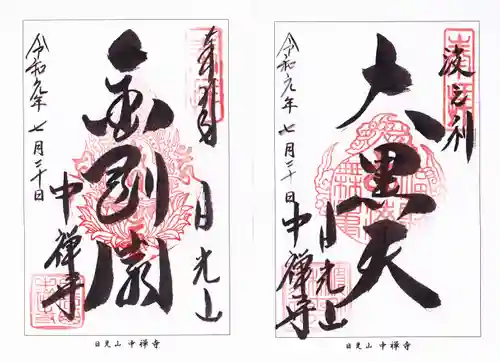 波之利
大黒天
日光山
中禅寺
令和元年七月三十日
日光山 中禅寺
奉拝
日光山
金剛
中禅寺
令和元年七月三十日
日光山 中禅寺